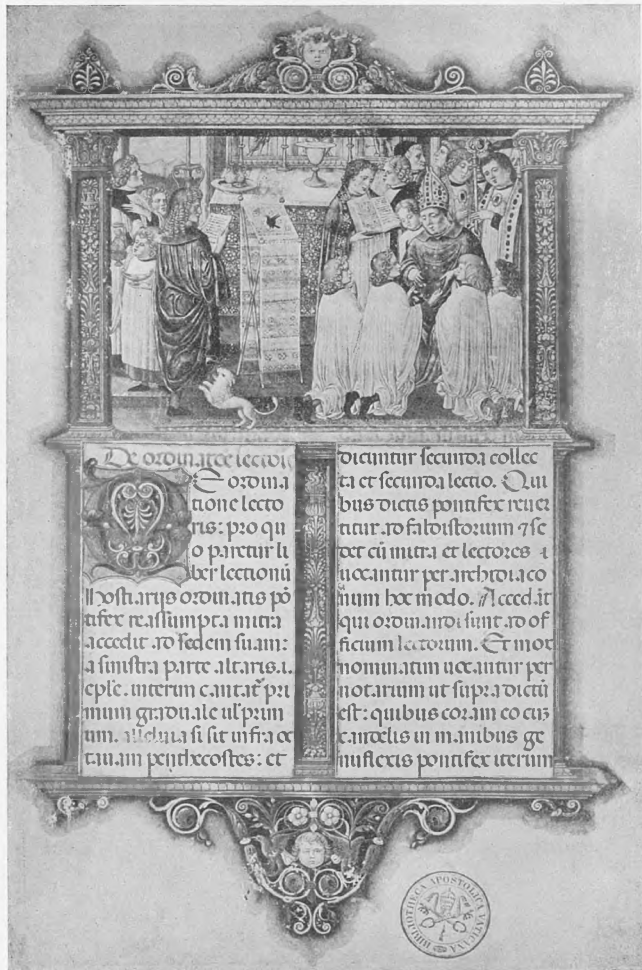 De ordinatõe lectoris
De ordina
tione lecto
ris: pro qu
o paretur li
ber lectionũ
Hostiarijs ordinatis põ
tifex reassumpta mitra
accedit ad sedem suam:
a sinistra parte altaris. i.
eple. interim cantat̃ pri
mum graduale ul' prim
um. alleluia si sit infra oc
tauam penthecostes: et
dicuntur secunda collec
ta et secunda lectio. Qui
bus dictis pontifex reuer
titur ad faldistorium ⁊ se
det cũ mitra et lectores
uocantur per archidiaco
num hoc modo. Accedãt
qui ordinandi sunt ad of
ficium lectorum. Et mox
nominatim uocantur per
notarium ut supra dictũ
est: quibus coram eo cuʒ
candelis in manibus ge
nuflexis pontifex iterum
BIBLIOTHECA APOSTOLICA VATICANA